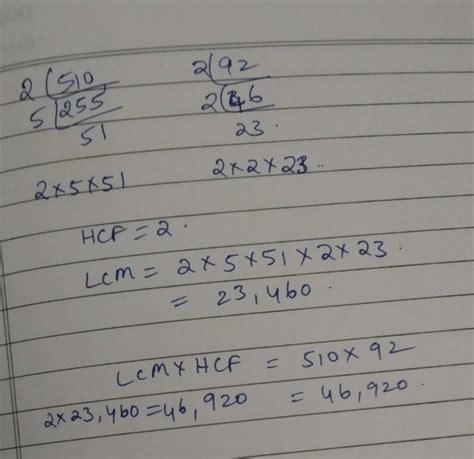 2 | 510    2 | 92
5 | 255    2 | 46
51    23.
2×5×51    2×2×23..
HCF = 2.
LCM = 2×5×51×2×23.
= 23,460.
LCM×HCF = 510×92
2×23,460=46,920 = 46,920.